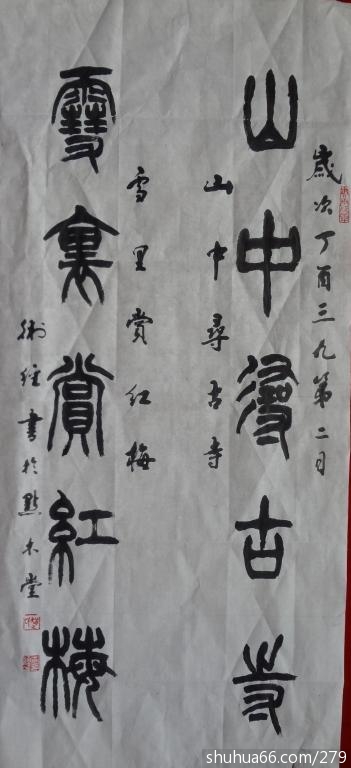 歲次丁酉三九第二日
山中尋古寺
山中尋古寺
雪里賞红梅
雪裏賞紅梅
書於點木堂
shuhua66.com/279